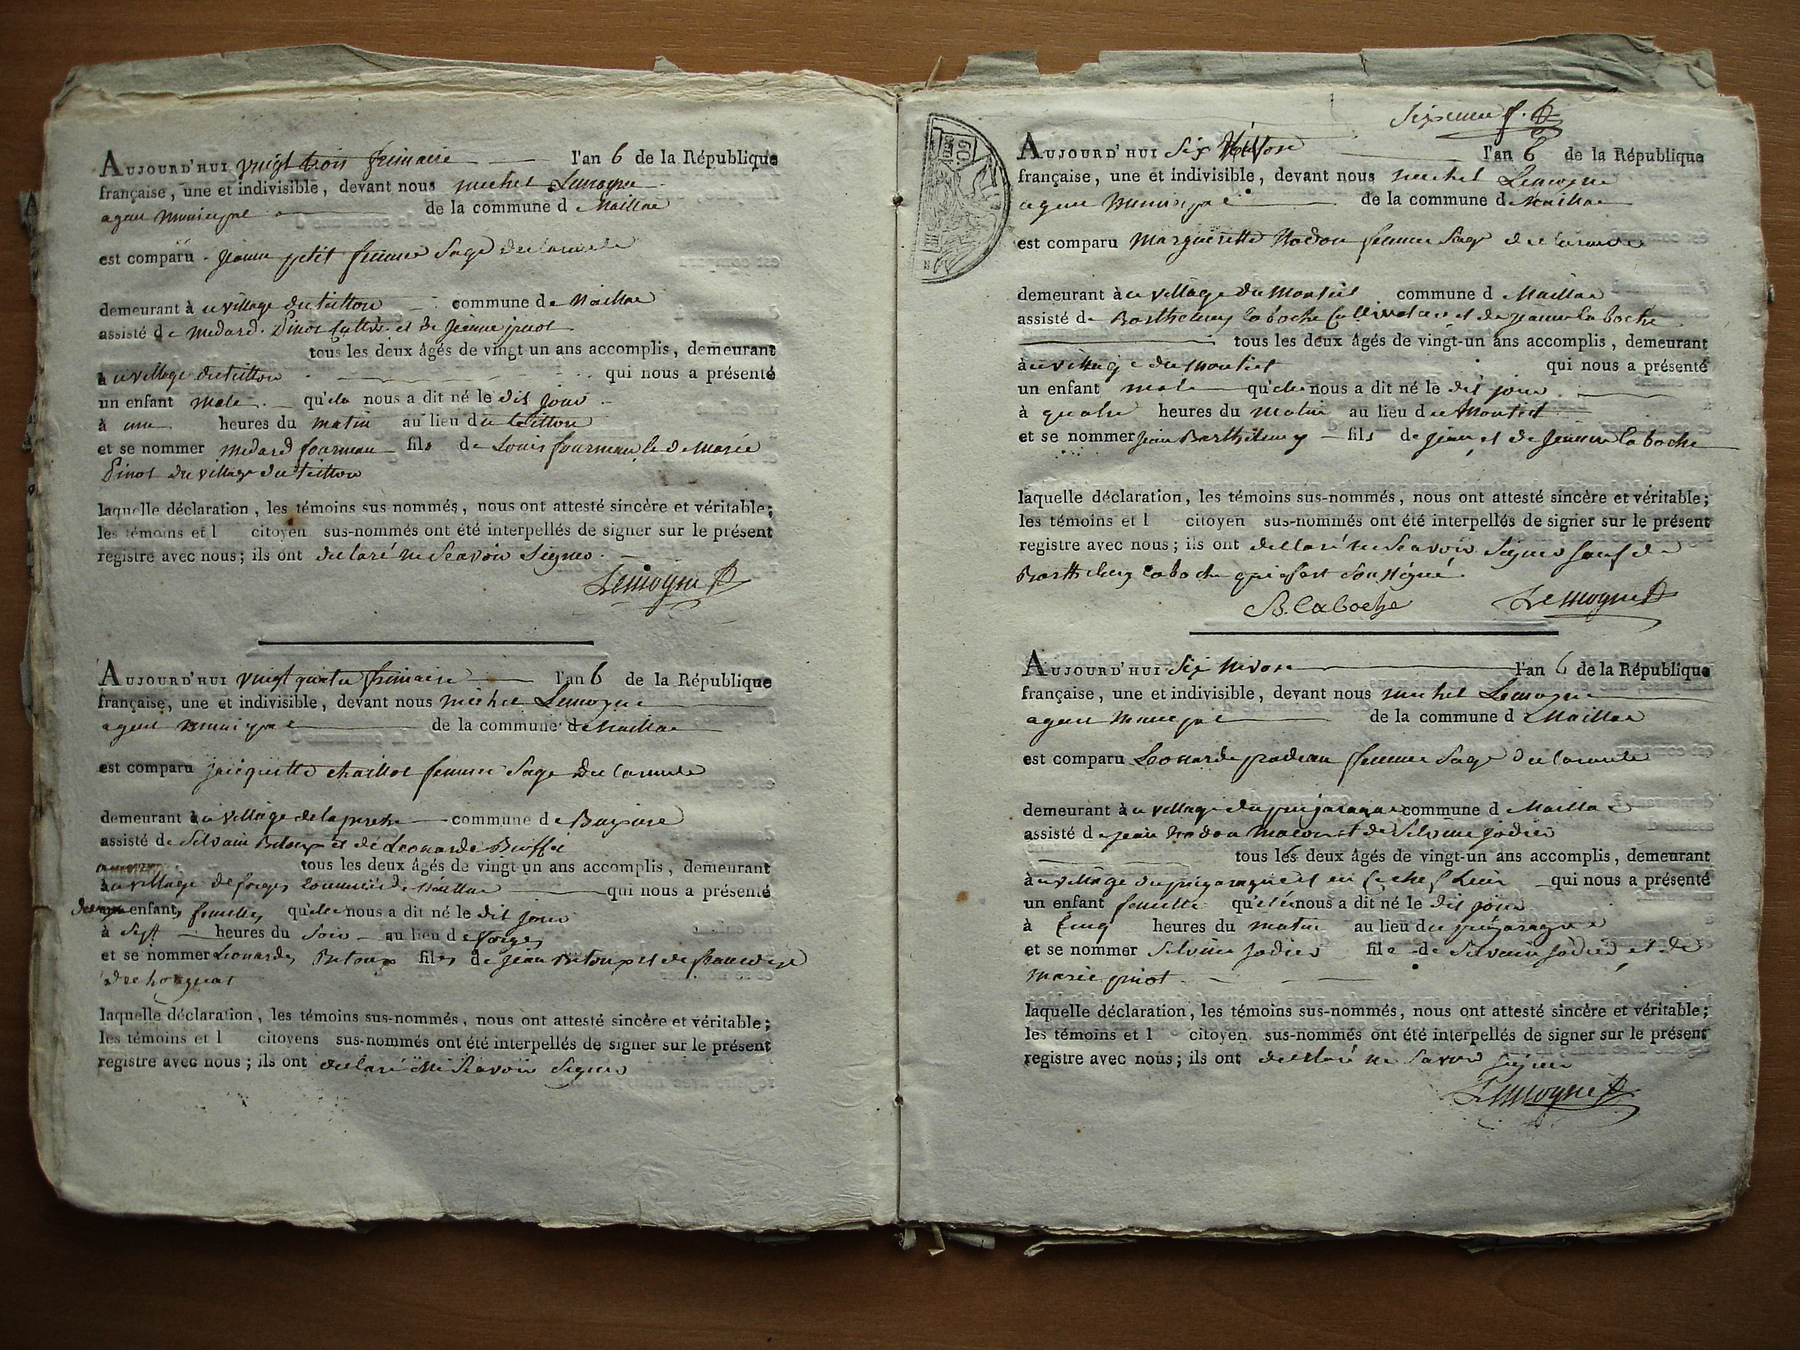 AUJOURD'HUI vingt trois frimaire l'an 6 de la République
française, une et indivisible, devant nous michel Lemoyne
agent municipal de la commune de Maillac
est comparu jeanne petit femme Sage
demeurant à u village du tuitton commune de Maillac
assisté de medard Pinot et de jeanne pinot
tous les deux âgés de vingt-un ans accomplis, demeurant
à u village du tuitton qui nous a présenté
un enfant male qu'elle nous a dit né le dit jour
à une heures du matin au lieu du tuitton
et se nommer medard fourneau fils de Louis fourneau et de Marie
Pinot du village du tuitton
laquelle déclaration, les témoins sus-nommés, nous ont attesté sincère et véritable;
les témoins et l citoyen sus-nommés ont été interpellés de signer sur le présent
registre avec nous; ils ont declaré ne Scavoir Signer.
Lemoyne
AUJOURD'HUI vingt quatre frimaire l'an 6 de la République
française, une et indivisible, devant nous michel Lemoyne
agent municipal de la commune de Maillac
est comparu jacquette chaillot femme Sage
demeurant à u village de la commune de
assisté de Silvain et de Leonarde
tous les deux âgés de vingt-un ans accomplis, demeurant
à u village de forges commune de Maillac qui nous a présenté
enfants femelles qu'elle nous a dit né le dit jour
à Sept heures du Soir au lieu de forges
et se nommer Leonardes filles de jean et de
laquelle déclaration, les témoins sus-nommés, nous ont attesté sincère et véritable;
les témoins et l citoyens sus-nommés ont été interpellés de signer sur le présent
registre avec nous; ils ont declaré ne Scavoir Signer
Sixieme f.
AUJOURD'HUI Six Nivose l'an 6 de la République
française, une et indivisible, devant nous michel Lemoyne
agent municipal de la commune de Maillac
est comparu Margueritte Nadou femme Sage
demeurant à u village du Monteil commune d Maillac
assisté de Barthelemy laboche Cultivateur et de jeanne laboche
tous les deux âgés de vingt-un ans accomplis, demeurant
à u village du Monteil qui nous a présenté
un enfant male qu'elle nous a dit né le dit jour
à quatre heures du matin au lieu du Monteil
et se nommer jean Barthelemy fils de jean et de jeanne laboche
laquelle déclaration, les témoins sus-nommés, nous ont attesté sincère et véritable;
les témoins et l citoyen sus-nommés ont été interpellés de signer sur le présent
registre avec nous; ils ont declaré ne Scavoir Signer Sauf
Barthelemy laboche qui s'est Soussigné
B. laboche Lemoyne
AUJOURD'HUI Six Nivose l'an 6 de la République
française, une et indivisible, devant nous michel Lemoyne
agent municipal de la commune d Maillac
est comparu Leonarde pradeau femme Sage
demeurant à u village du commune d Maillac
assisté de jean Nadou Macon et de Silvine jodier
tous les deux âgés de vingt-un ans accomplis, demeurant
à u village qui nous a présenté
un enfant femelle qu'elle nous a dit né le dit jour
à Cinq heures du matin au lieu du
et se nommer Silvine jodier file de Silvain jodier et de
marie pinot
laquelle déclaration, les témoins sus-nommés, nous ont attesté sincère et véritable;
les témoins et l citoyen sus-nommés ont été interpellés de signer sur le présent
registre avec nous; ils ont declaré ne Savoir Signer
Lemoyne